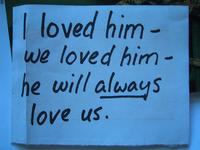 I loved him -
we loved him -
he will always
love us.